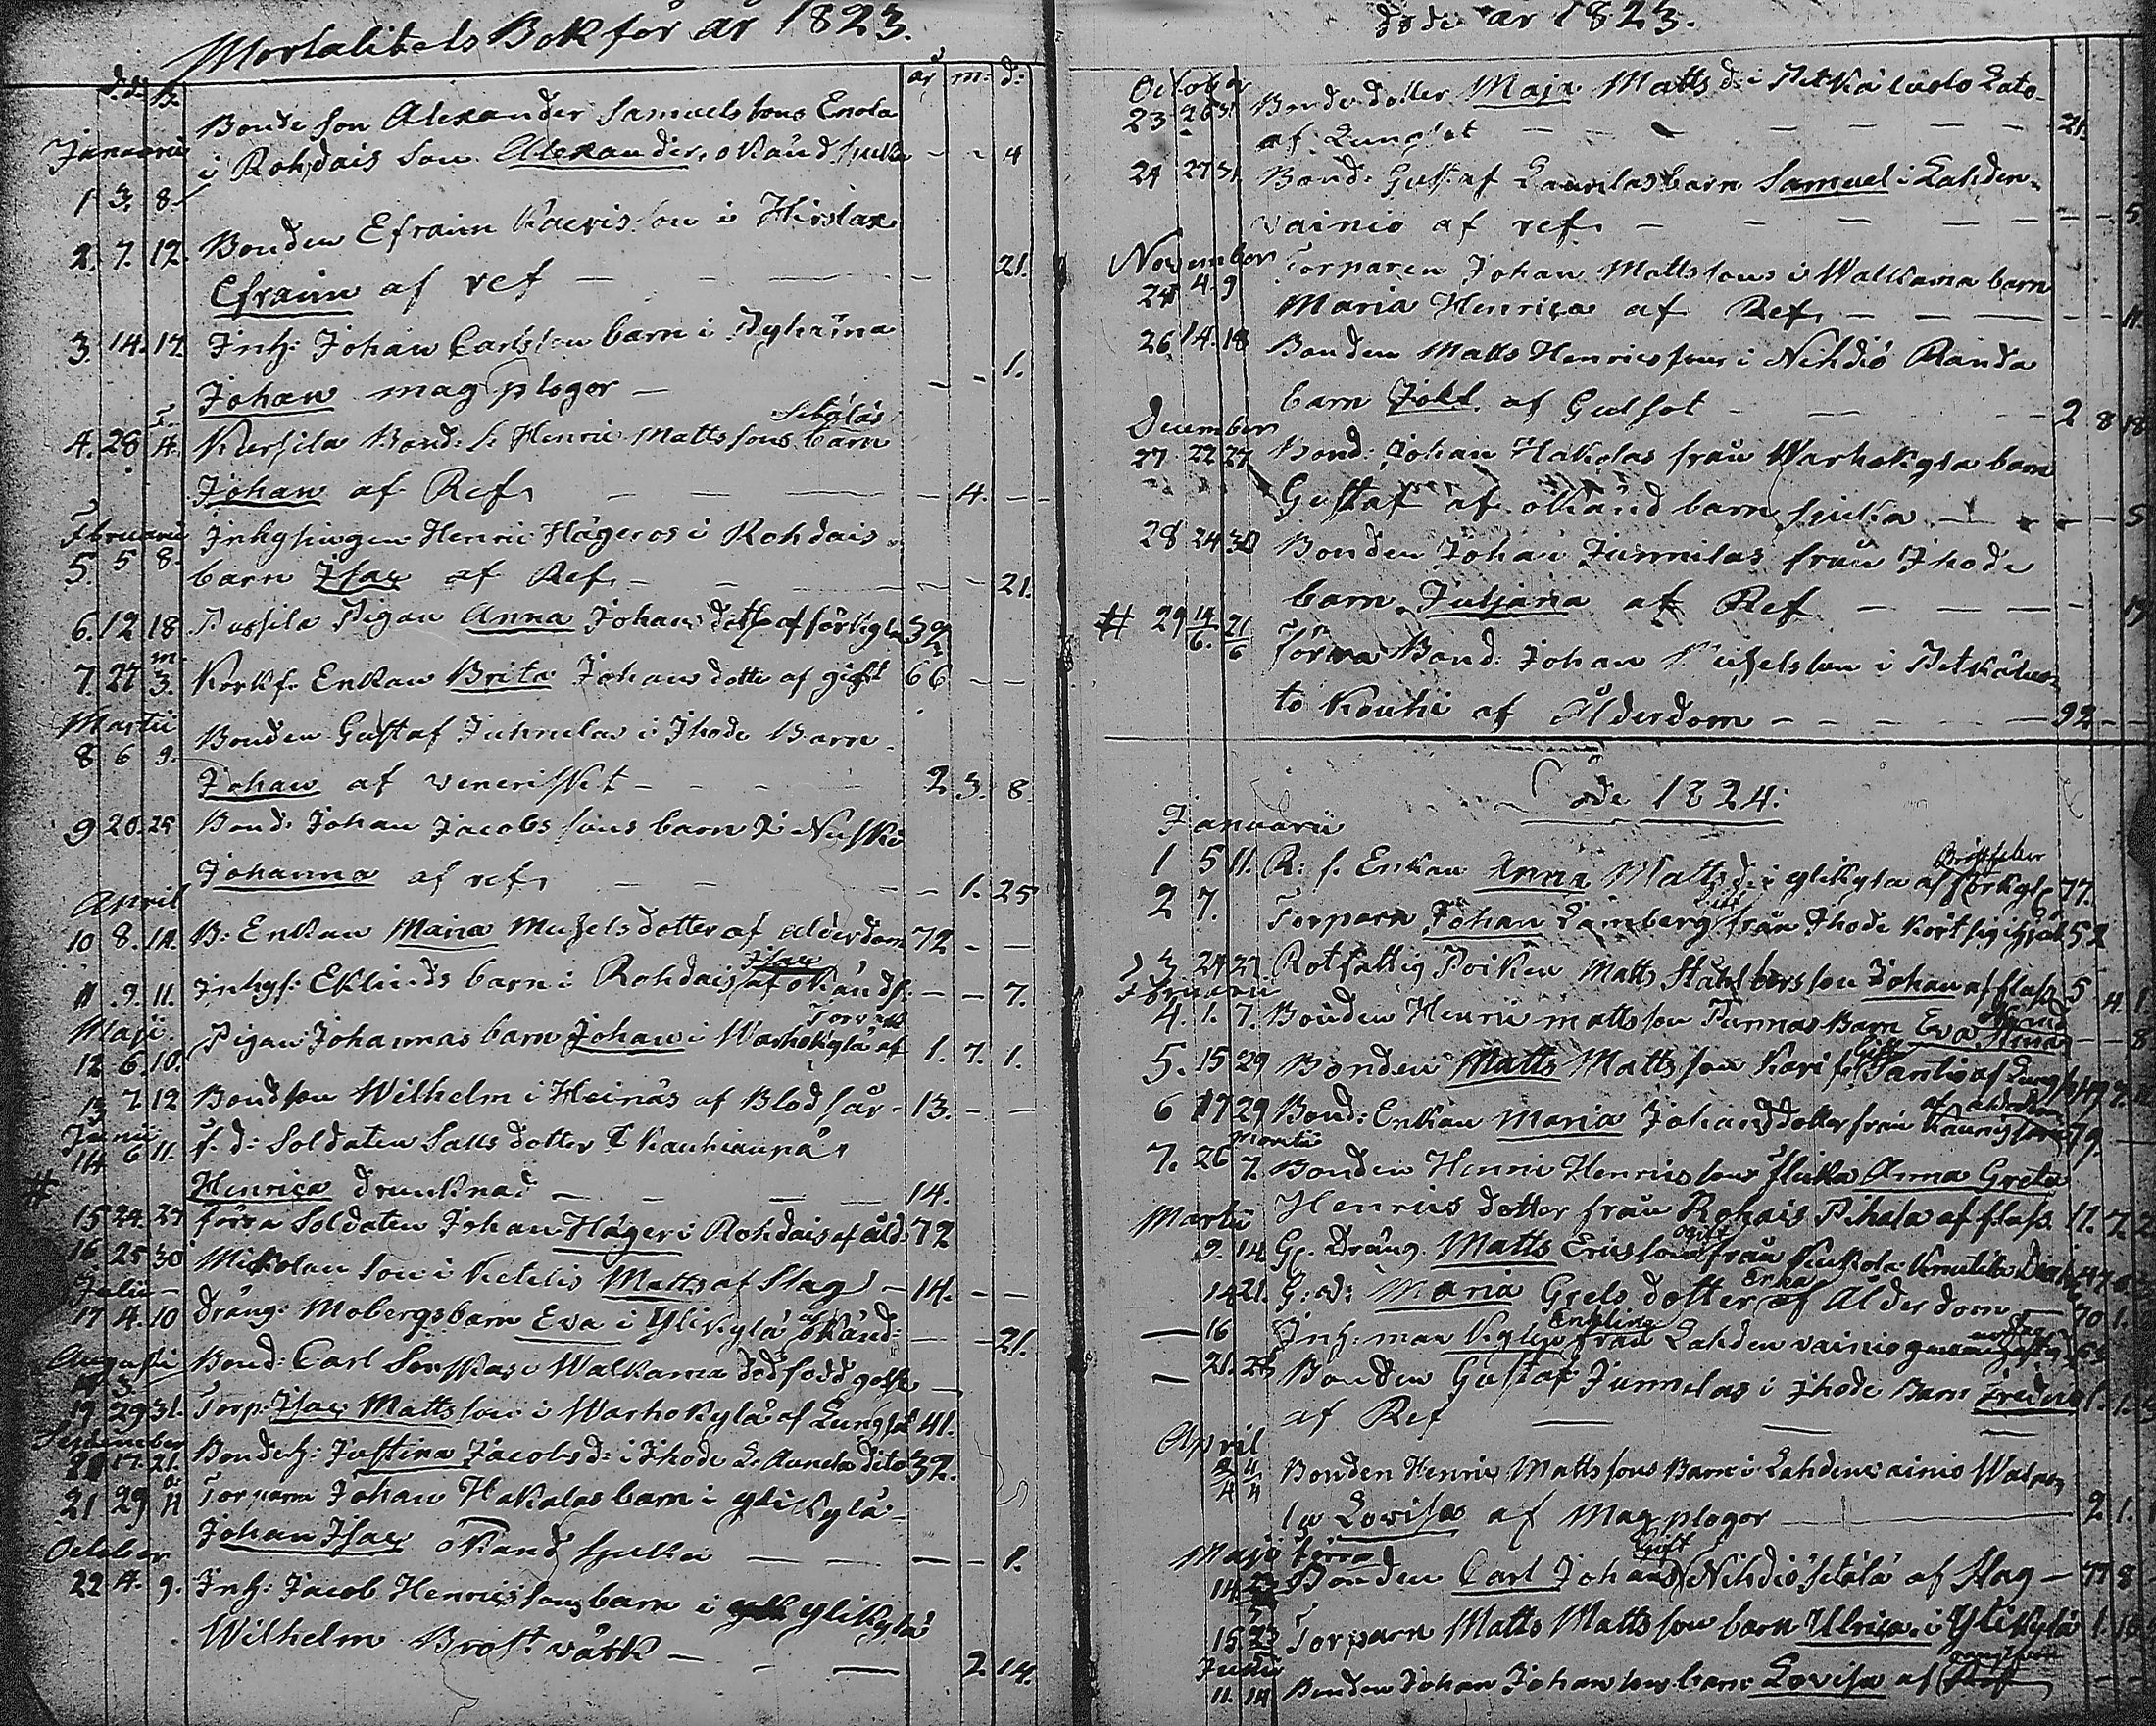 Mortalitets Bok för år 1823.
d. d. B. år m: d:
Bonde son Alexander Samuelssons Enola
Januarii i Rohdais son Alexander, okänd siuka - - 4
1 3. 8.
2. 7. 12. Bonden Efraim son i Hirslax
Efraim af ref - - - 21.
3. 14. 17. Inh: Johan Carlsson barn i Nyhäina
Johan magplogor - - - 1.
Sätäläs
4. 28 4. Kiersila Bond: S. Henric Mattssons barn
Johan af Ref, - - - 4. -
Februarii Inhysingen Henric Hägeros i Rohdais
5. 5 8. barn Isac af Ref, - - - 21.
6. 12 18. Pussila Pigan Anna Johans dotter af förkyln 32
7. 27 3. Kyrkf. Enkan Brita Johans dotter af gickt 66 - -
Martii
8 6 9. Bonden Gustaf Junnilas i Ihode Barn
Johan af veneriskt - - - 2 3. 8.
9 20. 25 Bond: Johan Jacobssons barn i Nuski
Johanna af ref, - - - 1. 25
April
10 8. 14. B: Enkan Maria Michelsdotter af ålderdom 72 - -
Isac
11 . 9. 11. Inhys: Eklunds barn i Rohdais af okänds. - - 7.
Maji.
12 6. 10. Pigan Johannas barn Johan i Warhokylä af 1. 7. 1.
13 7. 12 Bondson Wilhelm i Heinäs af Blodsår - 13. - -
Junii
14 6 11. f. d: Soldaten Salls dotter i Kauhianpä
# Henrica drunknad - - - 14.
15 24. 27 förra Soldaten Johan Häger i Rohdais af åld: 72
16. 25 30 Mickolan son i Ketelis Matts af Slag - 14. - -
Julii -
17 4. 10 dräng: Mobergs barn Ewa i Ylikylä af okänd: - - 21.
Augusti Bond: Carl i Walkama dödfödd gosse -
18 3.
19 29 31. Torp: Isac Mattsson i Warhokylä af Lungsot 41.
September
20 17. 21. Bondeh: Justina Jacobs d: i Ihode L. Aunela dito 32.
21 29 Torparn Johan Hakalas barn i Ylikylä
Johan Isac okänd siuka - - - 1.
October
22 4. 9. Inh: Jacob Henricssons barn i Ylikylä
Wilhelm Bröstwärk - - - 2. 14.
döde år 1823.
October
23 26 31 Bondedotter Maja Matts d: i Pitkäluoto Lato-
af Lungsot - - - 21.
24 27 31. Bond: Gustaf Laurilas barn Samuel i Lahden-
vainio af ref, - - - 5.
November
25 4. 9 Torparen Johan Mattssons i Walkama barn
Maria Henrica af Ref, - - - 11.
26 14. 18 Bonden Matts Henricssons i Nihdiö Randa
barn Johl. af Gulsot - - - 2 8 18
December
27 22 27 Bond: Johan Hakolas från Warhokyla barn
Gustaf af okänd barn siuka - - - 5
28 24 30 Bonden Johan Junnilas från Ihode
barn Juliana af Ref - - - 19
# 29 14/6. 21/6 förra Bond: Johan Michelsson i Pitkäluo-
to Kouhi af Ålderdom - - - 92 - -
Döde 1824:
Januarii
Bröstfeber
1 5 11. R: f. Enkan Anna Matts d: i Ylikyla af förkyl: 77.
Gift
2 7. Torparn Johan Lamberg från Ihode kört sig ihjäl 52
3 24 27. Rotfattig Poiken Matts Stahlbers son Johan af flass 5 4. 1
Februarii
okänd
4. 1. 7. Bonden Henric mattsson Punnas Barn Eva Stina - - 8
Gift
5. 15 29 Bonden Matts Mattsson Kari från Santio af Lungs 49 7.
af ålderdom
6 17 29 Bond: Enkan Maria Johans dotter från 79.
7. 26 Martii 7. Bonden Henric Henricssons flicka Anna Greta
Henrics dotter från Rohais Pihala af flass. 11. 7.
Martii
ogift
9. 14. Gl. Dräng Matts Ericsson från Kukola 47.
Enka
14 21. G: d: Maria Grels dotter af Ålderdom - 70 1.
Enkling
- 16 Inh: man från Lahden vainio
- 21. 25 Bonden Gustaf Junnilas i Ihode Barn Fredric 1. 1.
af Ref - - -
April
2/4 4/4 Bonden Henric Mattssons Barn i Lahdenvainio Walpu
la Lovisa af Magplogor - 2 1.
Maji förra Gift
14 23 Bonden Carl Johans Nihdiö Sätälä af Slag - 77 8
15. 23 Torparn Matts Mattsson barn Ulrica i Ylikylä 1. 10
Junii
11. 14 Bonden Johan Johanssons barn Lovisa af - -